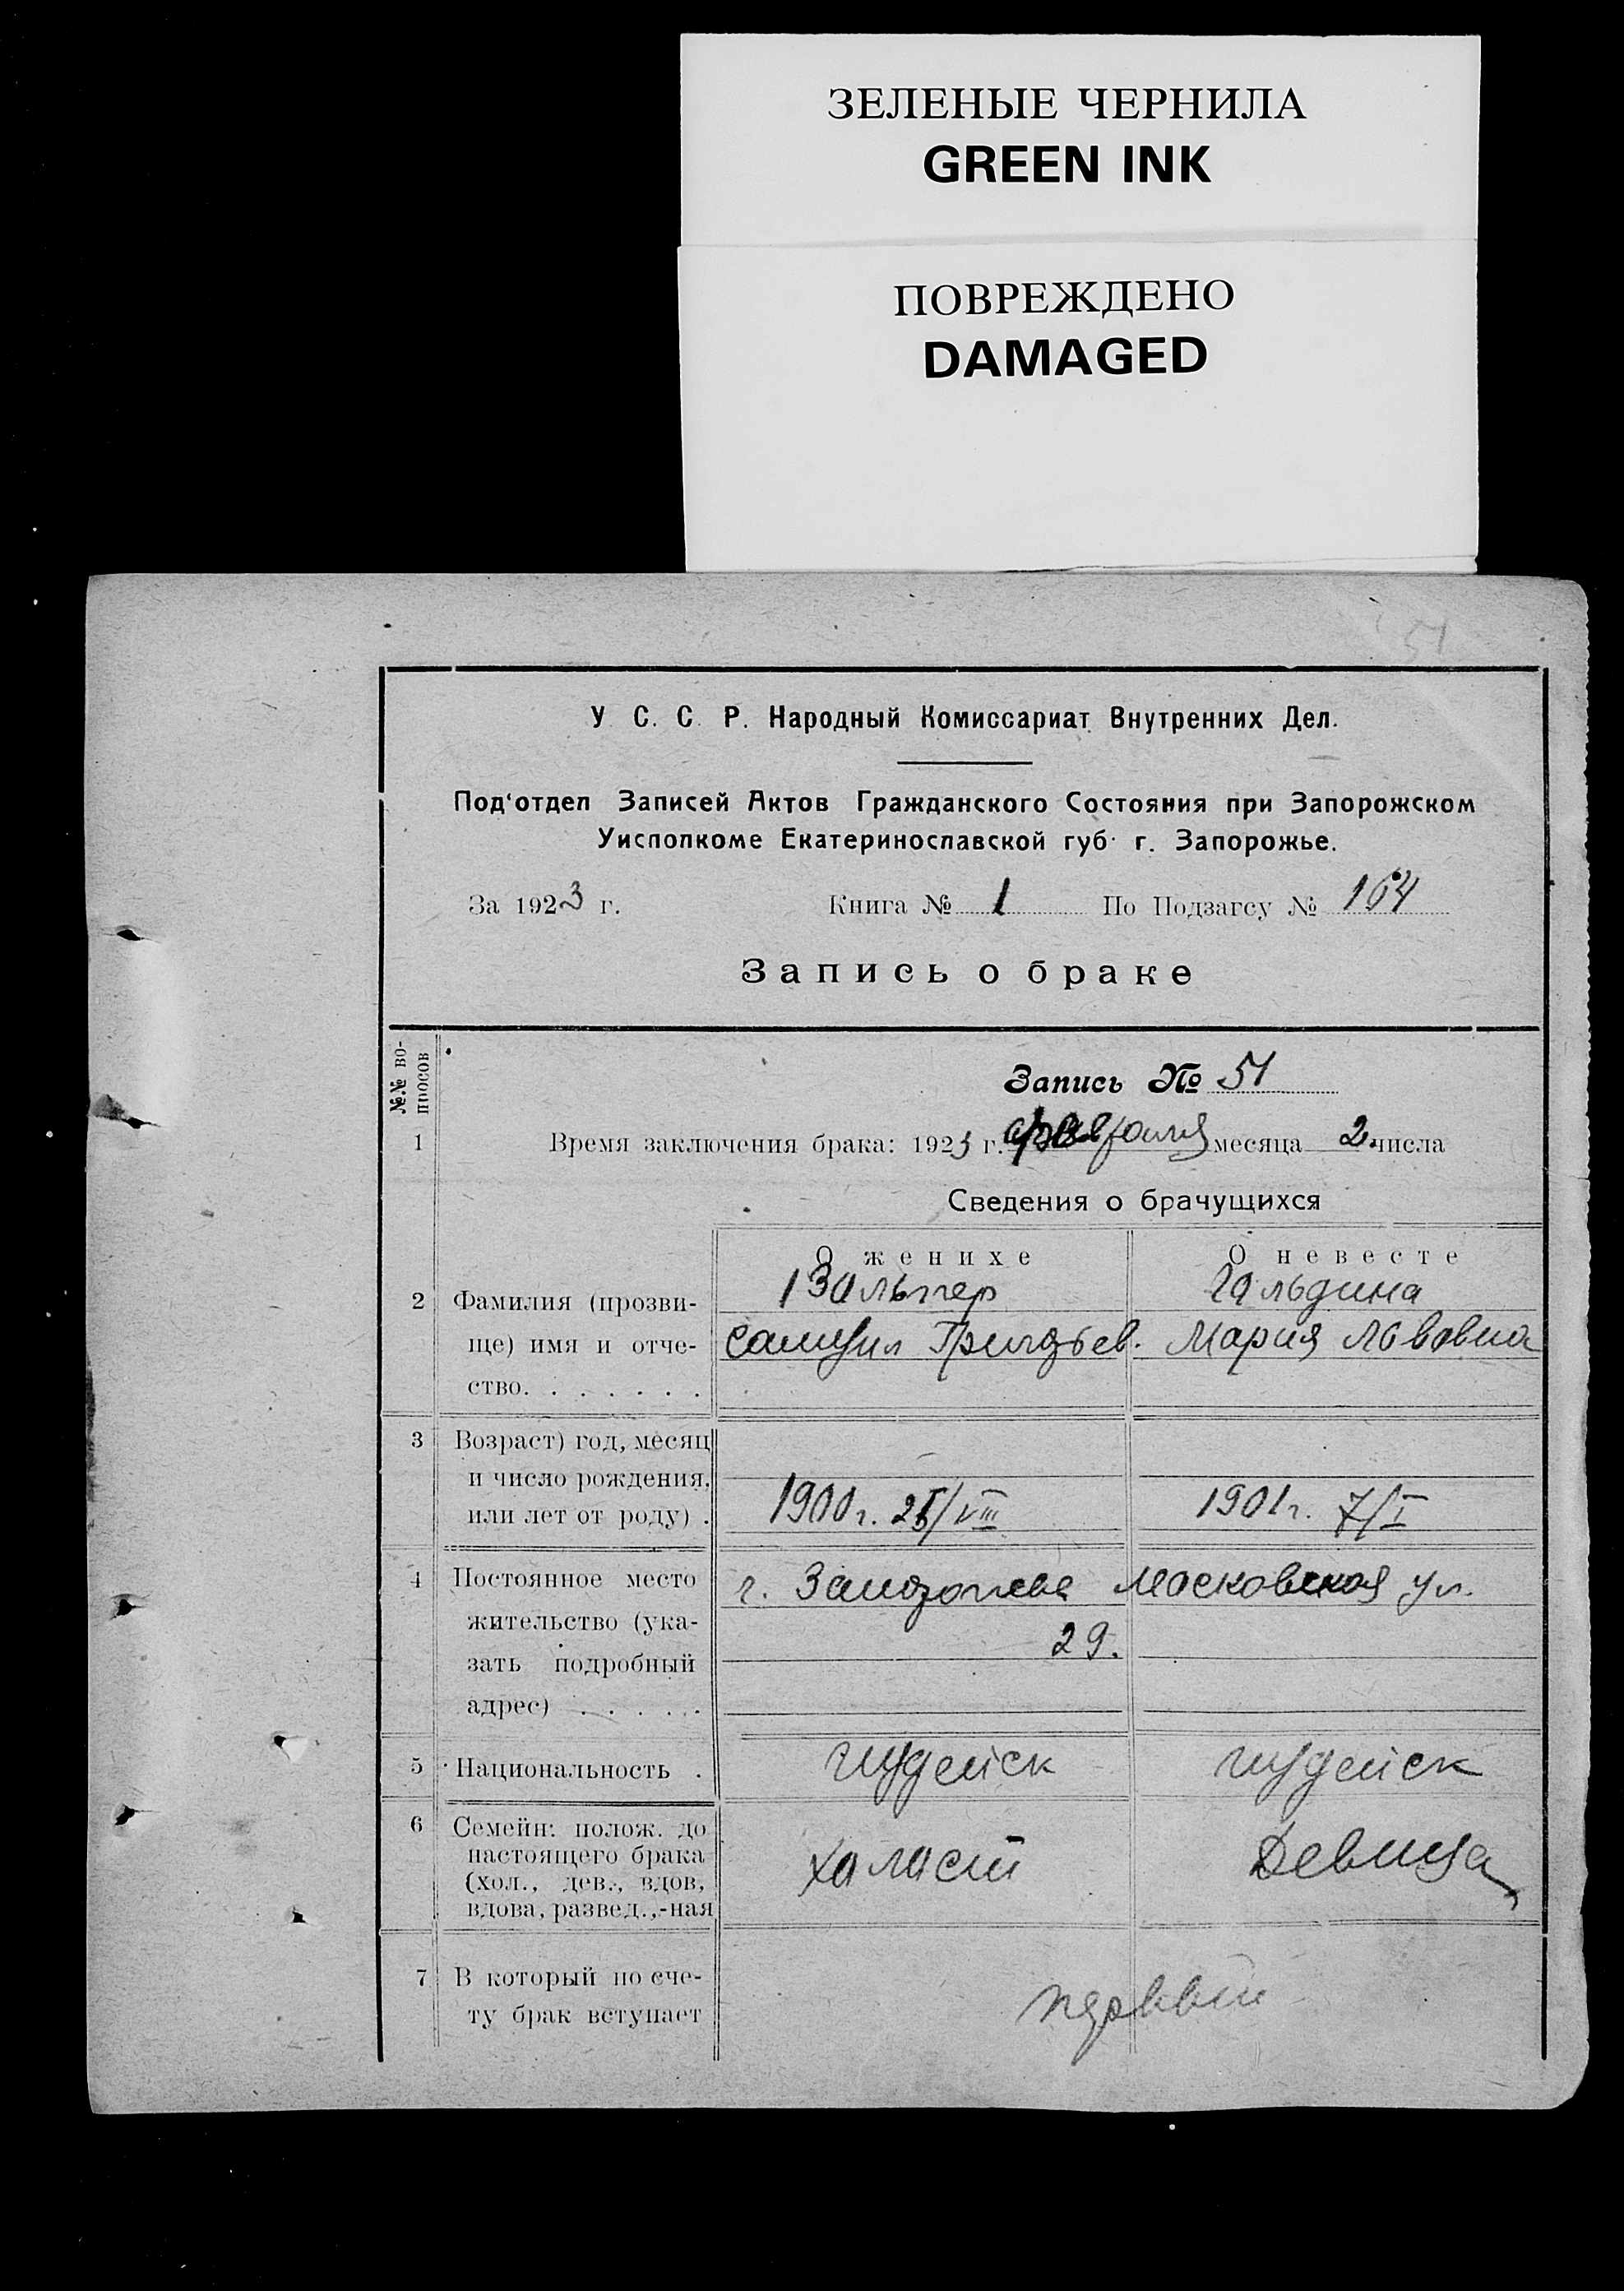 ЗЕЛЕНЫЕ ЧЕРНИЛА
GREEN INK
ПОВРЕЖДЕНО
DAMAGED
51
У. С. С. Р. Народный Комиссариат Внутренних Дел.
Под‘отдел Записей Актов Гражданского Состояния при Запорожском
Уисполкоме Екатеринославской губ. г. Запорожье.
За 1923 г. Книга № 1 По Подзагсу № 164
Запись о браке
№.№ во-
просов
Запись № 51
1 Время заключения брака: 1923 г. февраля месяца 2 числа
Сведения о брачущихся
О женихе О невесте
2 Фамилия (прозви- Гальдина
ще) имя и отче- Самуил Григорьев. Мария Львовна
ство. . . . . . .
3 Возраст) год, месяц
и число рождения,
или лет от роду) . 1900 г. /VIII 1901 г. 7/I
4 Постоянное место г. Запорожье Московская ул.
жительство (ука- 29.
зать подробный
адрес) . . . . .
5 Национальность . иудейск иудейск
6 Семейн: полож. до
настоящего брака
(хол., дев., вдов, халаст Девица
вдова, развед.,-ная
7 В который по сче- первый
ту брак вступает